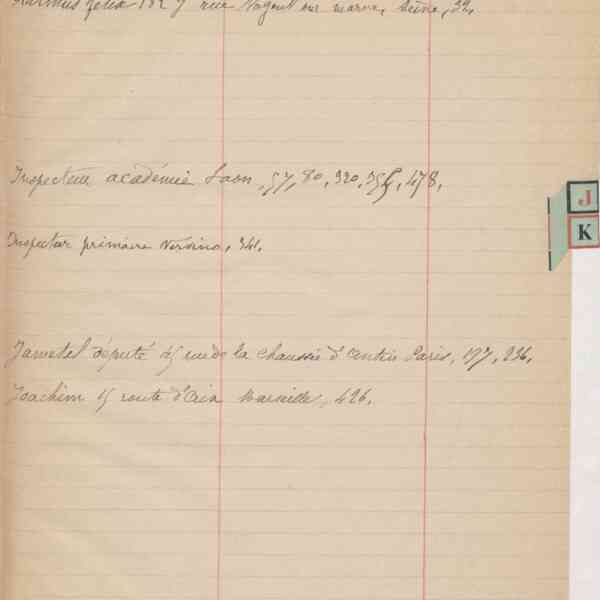 rue Nogent sur marne, Seine, 32.
Inspecteur académie Laon, 57, 80, 320, 478,
Inspecteur primaire Vervins, 341.
J
K
Jametel député rue de la chaussée d'antin Paris, 197, 236,
Joachim 15 route d'Aix Marseille, 426.